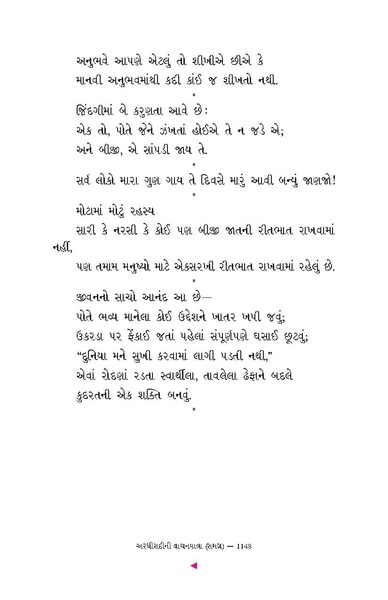 અનુભવે આપણે એટલું તો શીખીએ છીએ કે
માનવી અનુભવમાંથી કદી કાંઈ જ શીખતો નથી.
*
જિંદગીમાં બે કરુણતા આવે છે:
એક તો, પોતે જેને ઝંખતાં હોઈએ તે ન જડે એ;
અને બીજી, એ સાંપડી જાય તે.
*
સર્વ લોકો મારા ગુણ ગાય તે દિવસે મારું આવી બન્યું જાણજો!
*
મોટામાં મોટું રહસ્ય
સારી કે નરસી કે કોઈ પણ બીજી જાતની રીતભાત રાખવામાં
નહીં,
પણ તમામ મનુષ્યો માટે એકસરખી રીતભાત રાખવામાં રહેલું છે.
*
જીવનનો સાચો આનંદ આ છે—
પોતે ભવ્ય માનેલા કોઈ ઉદ્દેશને ખાતર ખપી જવું;
ઉકરડા પર ફેંકાઈ જતાં પહેલાં સંપૂર્ણપણે ઘસાઈ છૂટવું;
“દુનિયા મને સુખી કરવામાં લાગી પડતી નથી,”
એવાં રોદણાં રડતા સ્વાર્થીલા, તાવલેલા ઢેફાને બદલે
કુદરતની એક શક્તિ બનવું.
*
અરધીસદીની વાચનયાત્રા (સમગ્ર) — 1148